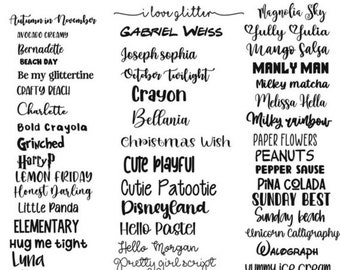 Autumn in November
AVOCADO CREAMY
Bernadette
BEACH DAY
Be my glittertine
CRAFTY BEACH
Charlotte
Bold Crayola
Grinched
HarryP
LEMON FRIDAY
Honest Darling
Little Panda
ELEMENTARY
Hug me tight
Luna
i love glitter
GABRIEL WEISS
Joseph sophia
October Twilight
Crayon
Bellania
CHRISTMAS WISH
CUTE PLAYFUL
Cutie Patootie
Disneyland
Hello Pastel
Hello Morgan
Pretty girl script
Magnolia Sky
Yully Yulia
Mango Salsa
MANLY MAN
Milky matcha
Melissa Hella
Milky rainbow
PAPER FLOWERS
PEANUTS
PEPPER SAUSE
PINA COLADA
SUNDAY BEST
Sunday beach
Unicorn Calligraphy
WALOGRAPH
yummy ice cream